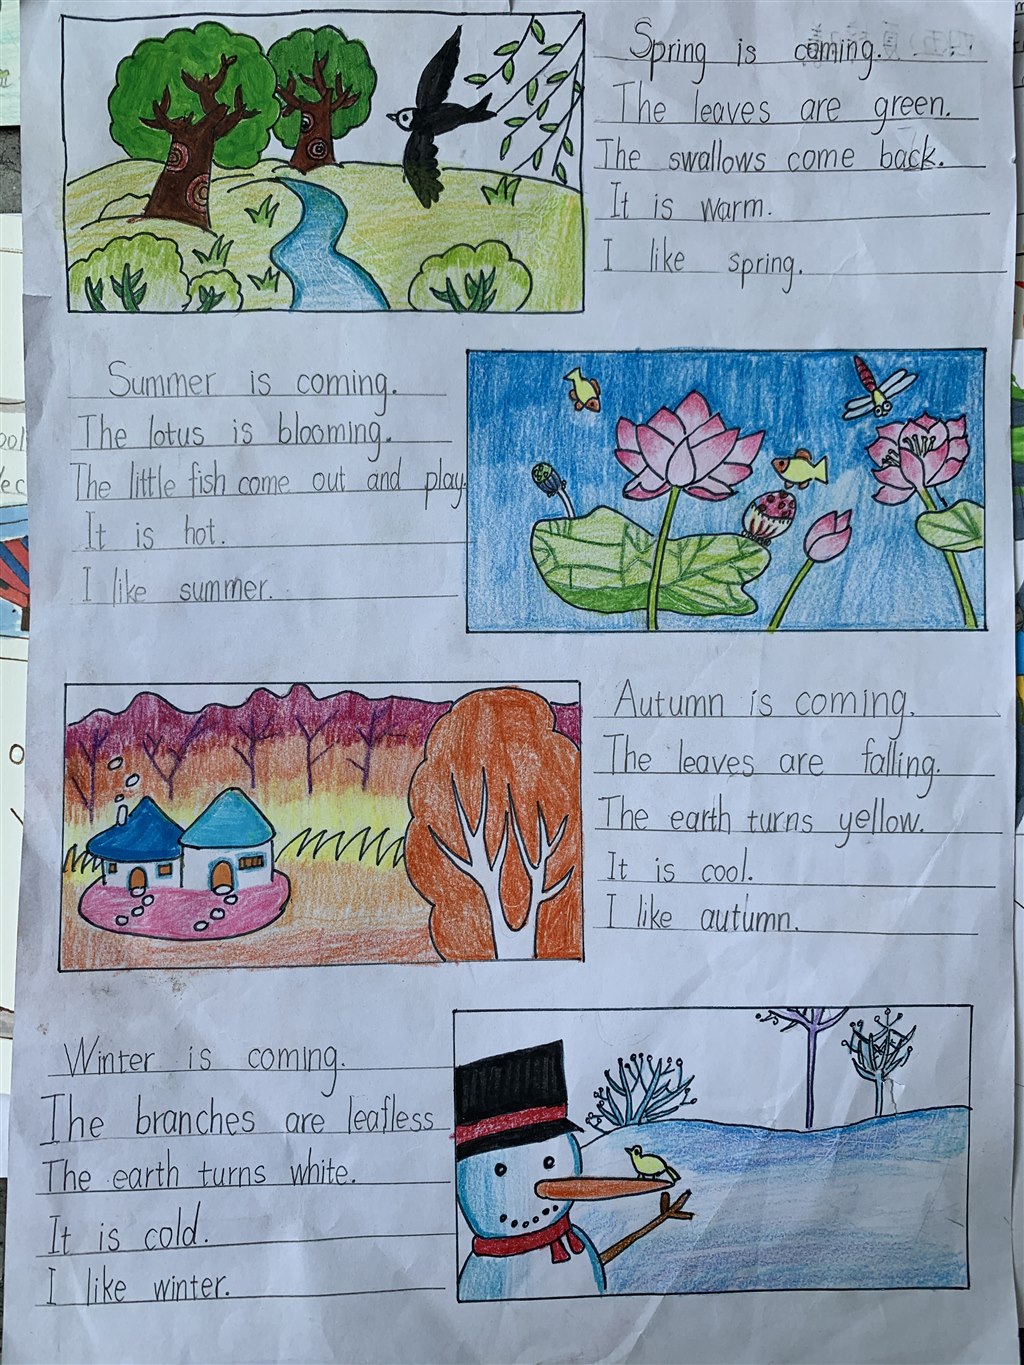 Spring is coming.
The leaves are green.
The swallows come back.
It is warm.
I like spring.
Summer is coming.
The lotus is blooming.
The little fish come out and play.
It is hot.
I like summer.
Autumn is coming.
The leaves are falling.
The earth turns yellow.
It is cool.
I like autumn.
Winter is coming.
The branches are leafless
The earth turns white.
It is cold.
I like winter.